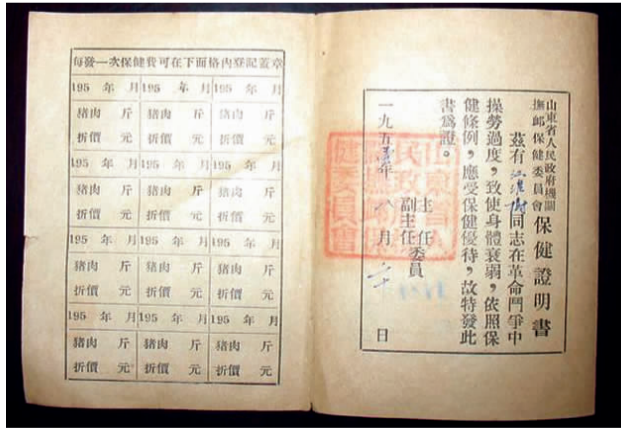 山東省人民政府機關
撫卹保健委員會
保健證明書
茲有江維樹同志在革命鬥爭中
操勞過度，致使身體衰弱，依照保
健條例，應受保健優待，故特發此
書爲證。
主任委員
副主任
一九五 年八月 日
每發一次保健費可在下面格內登記蓋章
195 年 月 195 年 月 195 年 月
豬肉 斤 豬肉 斤 豬肉 斤
折價 元 折價 元 折價 元
195 年 月 195 年 月 195 年 月
豬肉 斤 豬肉 斤 豬肉 斤
折價 元 折價 元 折價 元
195 年 月 195 年 月 195 年 月
豬肉 斤 豬肉 斤 豬肉 斤
折價 元 折價 元 折價 元
195 年 月 195 年 月 195 年 月
豬肉 斤 豬肉 斤 豬肉 斤
折價 元 折價 元 折價 元